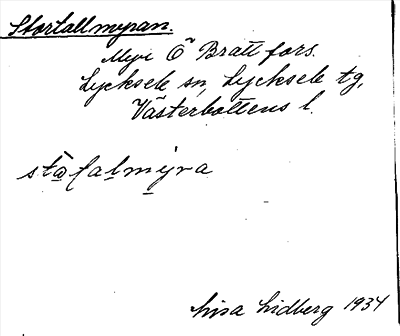 Stortallmyran.
Myr Ö Brattfors.
Lycksele sn, Lycksele tg,
Västerbottens l.
Lisa Lidberg 1934